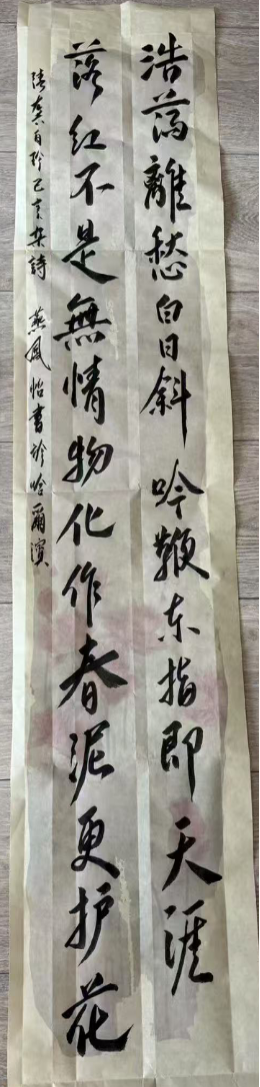 浩蕩離愁白日斜吟鞭东指即天涯
落红不是無情物化作春泥更护花
录龚自珍己亥杂詩 燕凤怡書於哈爾濱